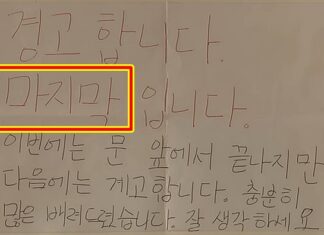 경고 합니다.
마지막 입니다.
이번에는 문 앞에서 끝나지만
다음에는 계고합니다. 충분히
많은 배려드렸습니다. 잘 생각하세요